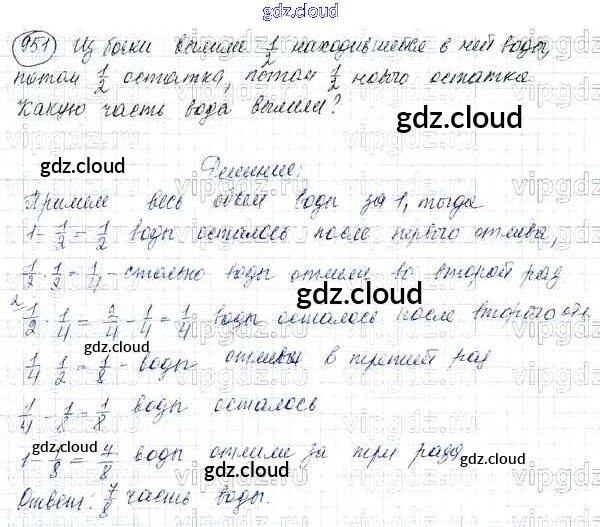 gdz.cloud
951) Из бочки вылили 1/2 находившейся в ней воды,
потом 1/2 остатка, потом 1/2 нового остатка
Какую часть воды вылили?
gdz.cloud
gdz.cloud
Решение:
Примем весь объем воды за 1, тогда
1 - 1/2 = 1/2 воды осталось после первого отлива,
1/2 · 1/2 = 1/4 - столько воды отлили во второй раз
gdz.cloud
2 1/2 - 1/4 = 2/4 - 1/4 = 1/4 воды осталось после второго
gdz.cloud
1/4 · 1/2 = 1/8 - воды отлили в третий раз
1/4 - 1/8 = 1/8 воды осталось
gdz.cloud
gdz.cloud
1 - 1/8 = 7/8 воды отлили за три раза
Ответ: 7/8 часть воды.
gdz.cloud